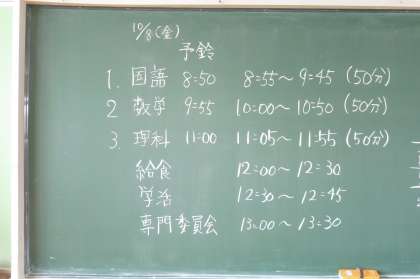 10/8(金)
予鈴
1. 国語 8:50 8:55～9:45 (50分)
2 数学 9:55 10:00～10:50 (50分)
3. 理科 11:00 11:05～11:55 (50分)
給食 12:00～12:30
学活 12:30～12:45
専門委員会 13:00～13:30